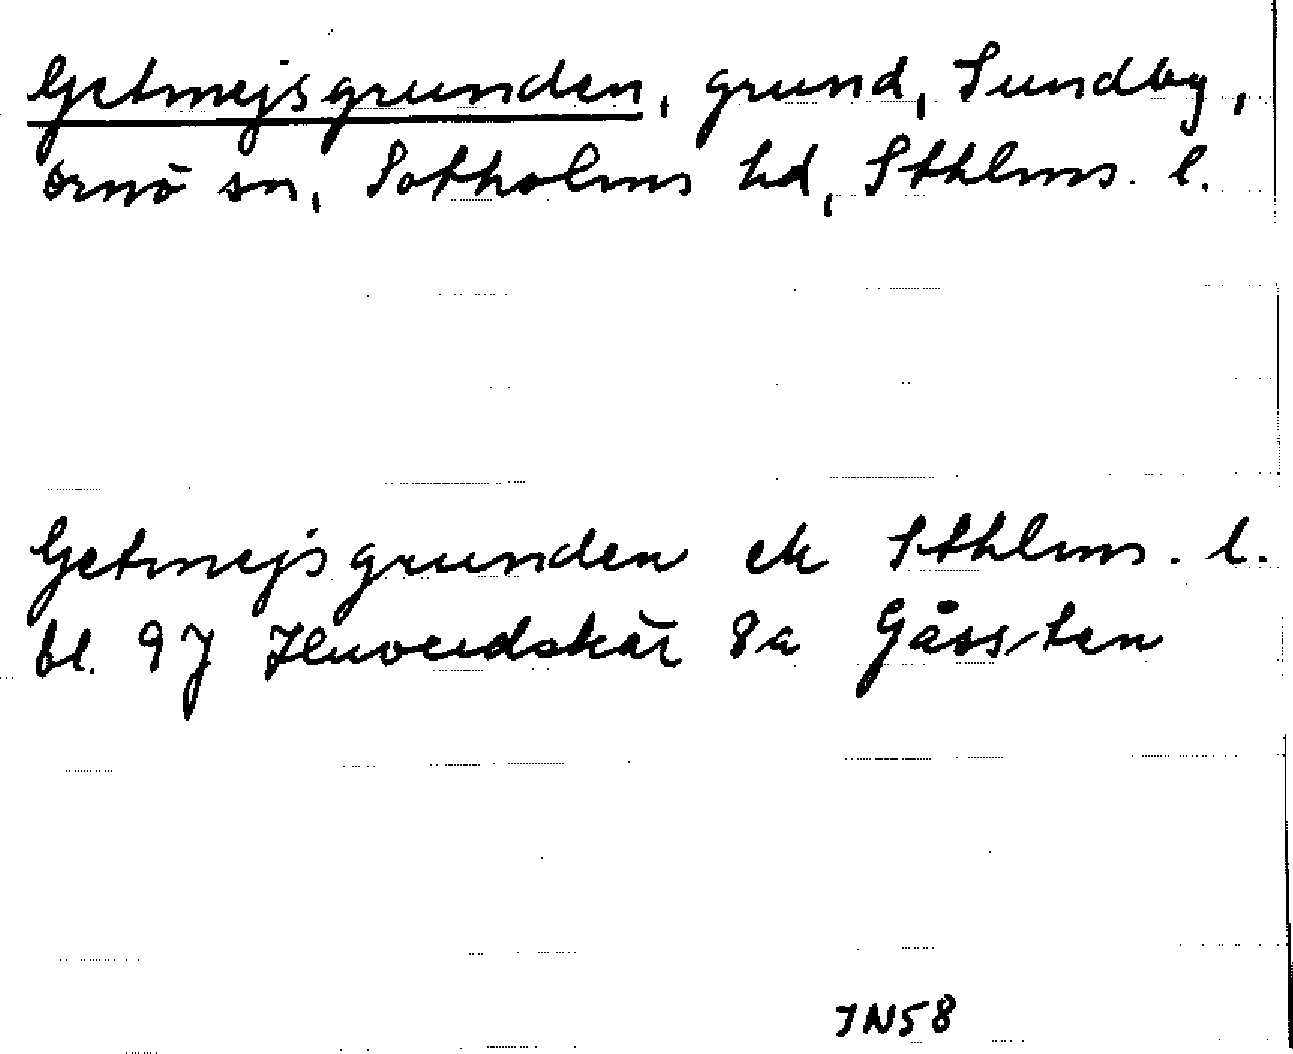 Getmejsgrunden, grund, Sundby,
Ornö sn, Sotholms hd, Sthlms. l.
Getmejsgrunden ek Sthlms. l.
bl. 9J Huvudskär 8a Gässten
JN58